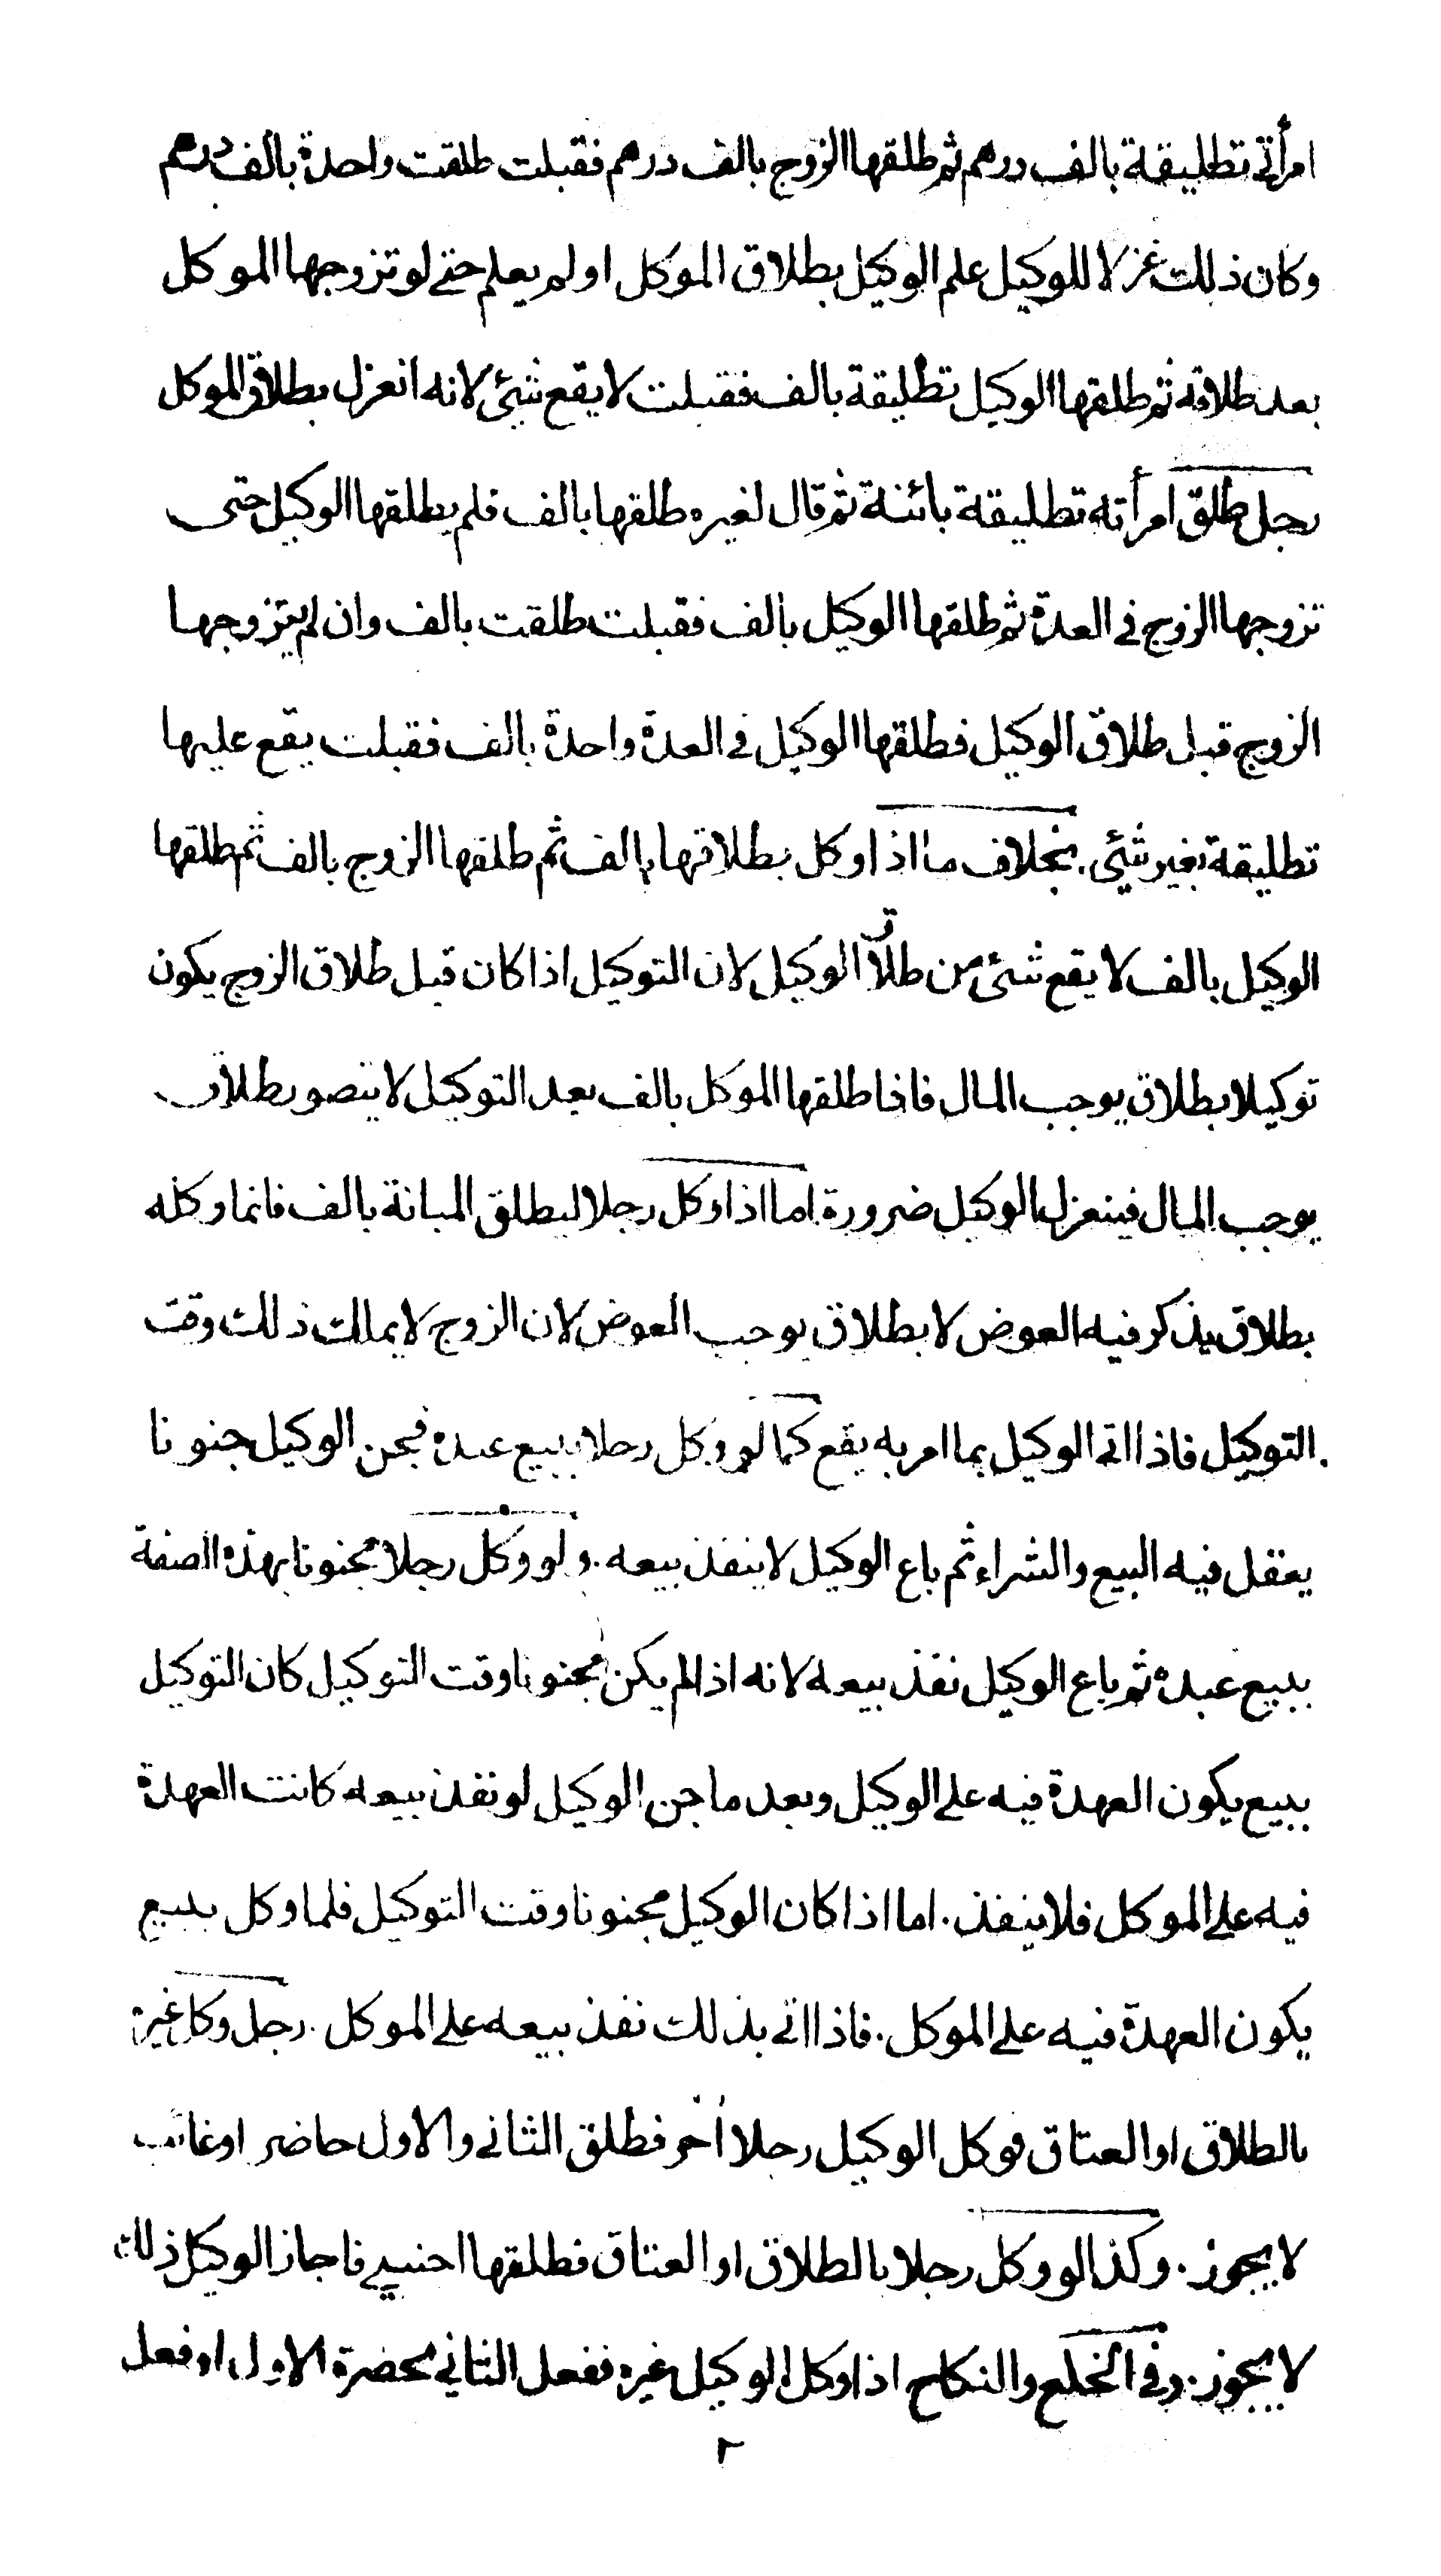 امرأتي تطليقة بالف درهم ثم طلقها الزوج بالف درهم فقبلت طلقت واحدة بالف درهم
وكان ذلك عزلا للوكيل علم الوكيل بطلاق الموكل او لم يعلم حتى لو تزوجها الموكل
بعد طلاقه ثم طلقها الوكيل تطليقة بالف فقبلت لا يقع شئ لانه انعزل بطلاق الموكل
رجل طلق امرأته تطليقة بائنة ثم قال لغيره طلقها بالف فلم يطلقها الوكيل حتى
تزوجها الزوج في العدة ثم طلقها الوكيل بالف فقبلت طلقت بالف وان لم يتزوجها
الزوج قبل طلاق الوكيل فطلقها الوكيل في العدة واحدة بالف فقبلت يقع عليها
تطليقة بغير شئ. بخلاف ما اذا وكل بطلاقها بالف ثم طلقها الزوج بالف ثم طلقها
الوكيل بالف لا يقع شئ من طلاق الوكيل لان التوكيل اذا كان قبل طلاق الزوج يكون
توكيلا بطلاق يوجب المال فاذا طلقها الموكل بالف بعد التوكيل لا يتصور بطلاق
يوجب المال فينعزل الوكيل ضرورة اما اذا وكل رجلا ليطلق المبانة بالف فانما وكله
بطلاق يذكر فيه العوض لا بطلاق يوجب العوض لان الزوج لا يملك ذلك وقت
التوكيل فاذا اتى الوكيل بما امر به يقع كما لو وكل رجلا ببيع عبده فجن الوكيل جنونا
يعقل فيه البيع والشراء ثم باع الوكيل لا ينفذ بيعه. ولو وكل رجلا مجنونا بهذه الصفة
ببيع عبده ثم باع الوكيل نفذ بيعه لانه اذا لم يكن مجنونا وقت التوكيل كان التوكيل
ببيع يكون العهدة فيه على الوكيل وبعد ما جن الوكيل لو نفذ بيعه كانت العهدة
فيه على الموكل فلا ينفذ. اما اذا كان الوكيل مجنونا وقت التوكيل فلما وكل ببيع
يكون العهدة فيه على الموكل. فاذا اتى بذلك نفذ بيعه على الموكل. رجل وكل غيره
بالطلاق او العتاق فوكل الوكيل رجلا آخر فطلق الثاني والاول حاضر او غائب
لا يجوز. وكذا لو وكل رجلا بالطلاق او العتاق فطلقها اجنبي فاجاز الوكيل ذلك
لا يجوز. وفي الخلع والنكاح اذا وكل الوكيل غيره ففعل الثاني بحضرة الاول او فعل
٢